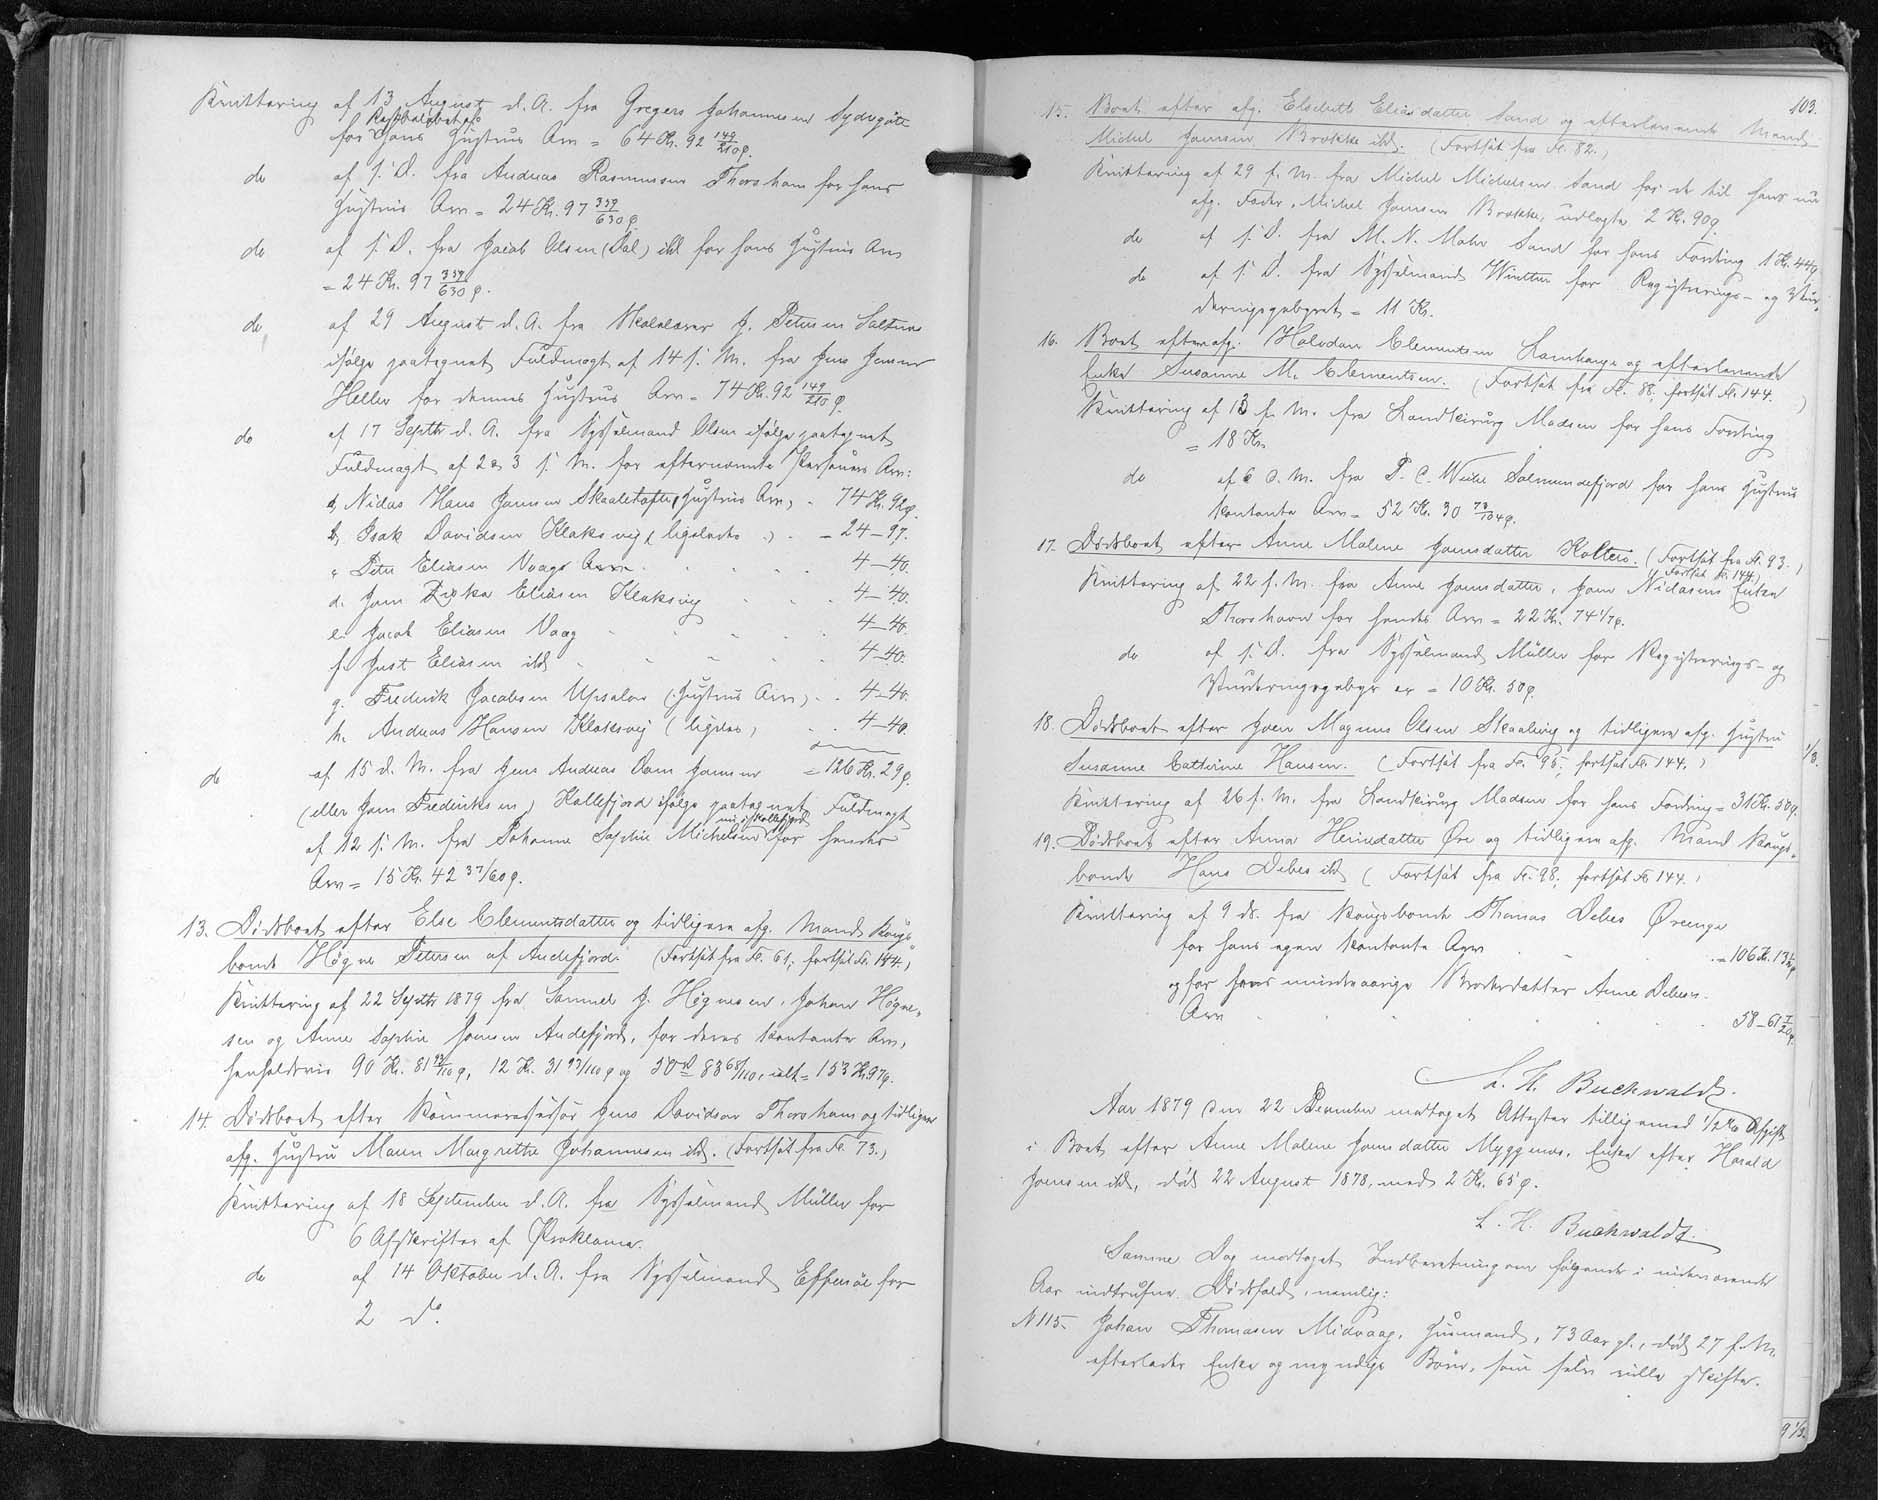 Kvittering af 13 August d. A. fra Gregers Johannesen Sydregøte
Restbeløbet af
for hans Hustrus Arv = 64 Kr. 92 149/210 ø.
do af s. D. fra Andreas Rasmussen Thorshavn for hans
Hustrus Arv = 24 Kr. 97 359/630 ø
do af s. D. fra Jacob Olsen (Dal) ibd for hans Hustrus Arv
= 24 Kr. 97 359/630 ø.
do af 29 August d. A. fra Skolelærer J. Petersen Saltnæs
ifølge paategnet Fuldmagt af 14 s. M. fra Jens Jensen
Heller for dennes Hustrus Arv = 74 Kr. 92 149/210 ø.
do af 17 Septbr d. A. fra Sysselmand Olsen ifølge paategnet
Fuldmagt af 2 & 3 s. M. for efternævnte Personers Arv:
a, Niclas Hans Joensen Skaaletofte, (Hustrus Arv) - 74 Kr. 92 ø.
b, Isak Davidsen Klaksvig ( ligeledes ) - 24 - 97.
c Peter Eliasen Vaag Arv 4 - 40.
d. Joen Eliasen Klaksvig 4 - 40.
e. Jacob Eliasen Vaag 4 - 40.
f. Just Eliasen ibd 4 - 40.
g. Frederik Jacobsen Upsalar (Hustrus Arv) 4 - 40.
h. Andreas Hansen Klaksvig ( ligeles ) 4 - 40.
= 126 Kr. 29 ø.
do af 15 d. M. fra Jens Andreas Dam Joensen
(eller Joen Frederiksen) Kollefjord ifølge paategnet Fuldmagt
af 12 s. M. fra Johanne Sophie Michelsen nu i Kollefjord for hendes
Arv = 15 Kr. 42 37/60 ø.
13. Dødsboet efter Else Clementsdatter og tidligere afg. Mand Kongs-
bonde Høgne Petersen af Andefjord. (Fortsat fra Fo. 61; fortsat Fo. 144.)
Kvittering af 22 Septbr 1879 fra Samuel J. Høgnesen, Johan Høgne-
sen og Anne Sophie Joensen Andefjord, for deres kontante Arv,
henholdsvis 90 Kr. 81 93/110 ø, 12 Kr. 31 93/110 ø og 50 d 83 68/110, ialt = 153 Kr. 97 ø.
14. Dødsboet efter Kammerassessor Jens Davidson Thorshavn og tidligere
afg. Hustru Maren Margrethe Johannesen ibd. (Fortsat fra Fo. 73.)
Kvittering af 18 September d. A. fra Sysselmand Müller for
6 Afskrifter af Proklama.
do af 14 Oktober d. A. fra Sysselmand Effersøe for
2 do.
103.
15. Boet efter afg. Elsebeth Eliasdatter Sand og efterlevende Mand
Michel Joensen Brekke ibd. (Fortsat fra Fo. 82.)
Kvittering af 29 f. M. fra Michel Michelsen Sand for de til hans nu
afg. Fader, Michel Joensen Brekke, udlagte 2 Kr. 90 ø.
do af s. D. fra M. N. Mohr Sand for hans Fordring 1 Kr. 44 ø
do af s. D. fra Sysselmand Winther for Registrerings- og Vur-
deringsgebyret = 11 Kr.
16. Boet efter afg. Halvdan Clementsen Lamhauge og efterlevende
Enke Susanne M. Clementsen. (Fortsat fra Fo. 88; fortsat Fo. 144.)
Kvittering af 13 f. M. fra Landkirurg Madsen for hans Fordring
= 18 Kr.
do af 6 d. M. fra P. C. Weihe Salmundefjord for hans Hustrus
kontante Arv = 52 Kr. 30 73/104 ø.
17. Dødsboet efter Anne Malene Joensdatter Kolter. (Fortsat fra Fo. 93.)
Fortsat Fo. 144.)
Kvittering af 22 f. M. fra Anne Joensdatter, Joen Niclasens Enke
Thorshavn for hendes Arv = 22 Kr. 74 1/7 ø.
do af s. D. fra Sysselmand Müller for Registrerings- og
Vurderingsgebyr er = 10 Kr. 50 ø.
18. Dødsboet efter Joen Magnus Olsen Skaalevig og tidligere afg. Hustru
Susanne Cathrine Hansen. (Fortsat fra Fo. 95; fortsat Fo. 144.)
Kvittering af 26 f. M. fra Landkirurg Madsen for hans Fordring = 31 Kr. 50 ø.
19. Dødsboet efter Anna Heinesdatter Øre og tidligere afg. Mand Kongs-
bonde Hans Debes ibd ( Fortsat fra Fo. 98; fortsat Fo. 144.)
Kvittering af 9 ds. fra Kongsbonde Thomas Debes Ørenge
for hans egen kontante Arv = 106 Kr. 13
og for hans mindreaarige Broderdatter Anne Debes.
Arv 58 - 61
L. H. Buchwaldt.
Aar 1879 den 22 December modtaget Attester tilligemed 1/2 % Afgift
i Boet efter Anne Malene Joensdatter Myggenæs, Enke efter Harald
Joensen ibd, død 22 August 1878, med 2 Kr. 65 ø.
L. H. Buchwaldt.
Samme Dag modtaget Indberetning om følgende i nærværende
Aar indtrufne Dødsfald, nemlig:
N 115. Johan Thomasen Midvaag, Husmand, 73 Aar gl., død 27 f. M.
efterlader Enke og myndige Børn, som selv ville skifte.